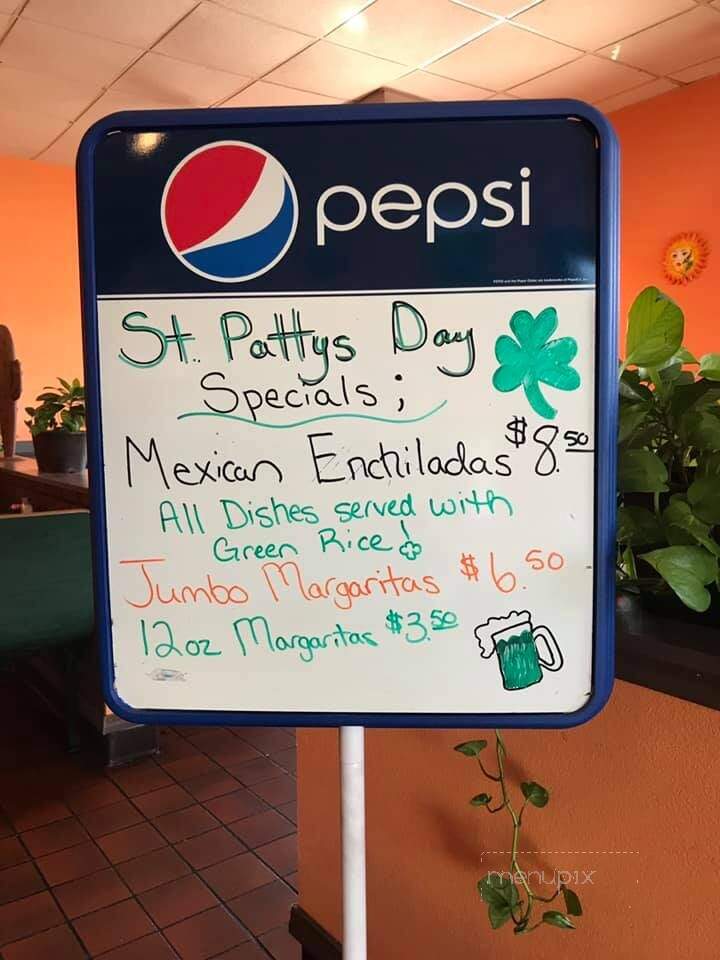 pepsi
St. Pattys Day
Specials ;
Mexican Enchiladas $8.50
All Dishes served with
Green Rice!
Jumbo Margaritas $6.50
12oz Margaritas $3.50
menupix